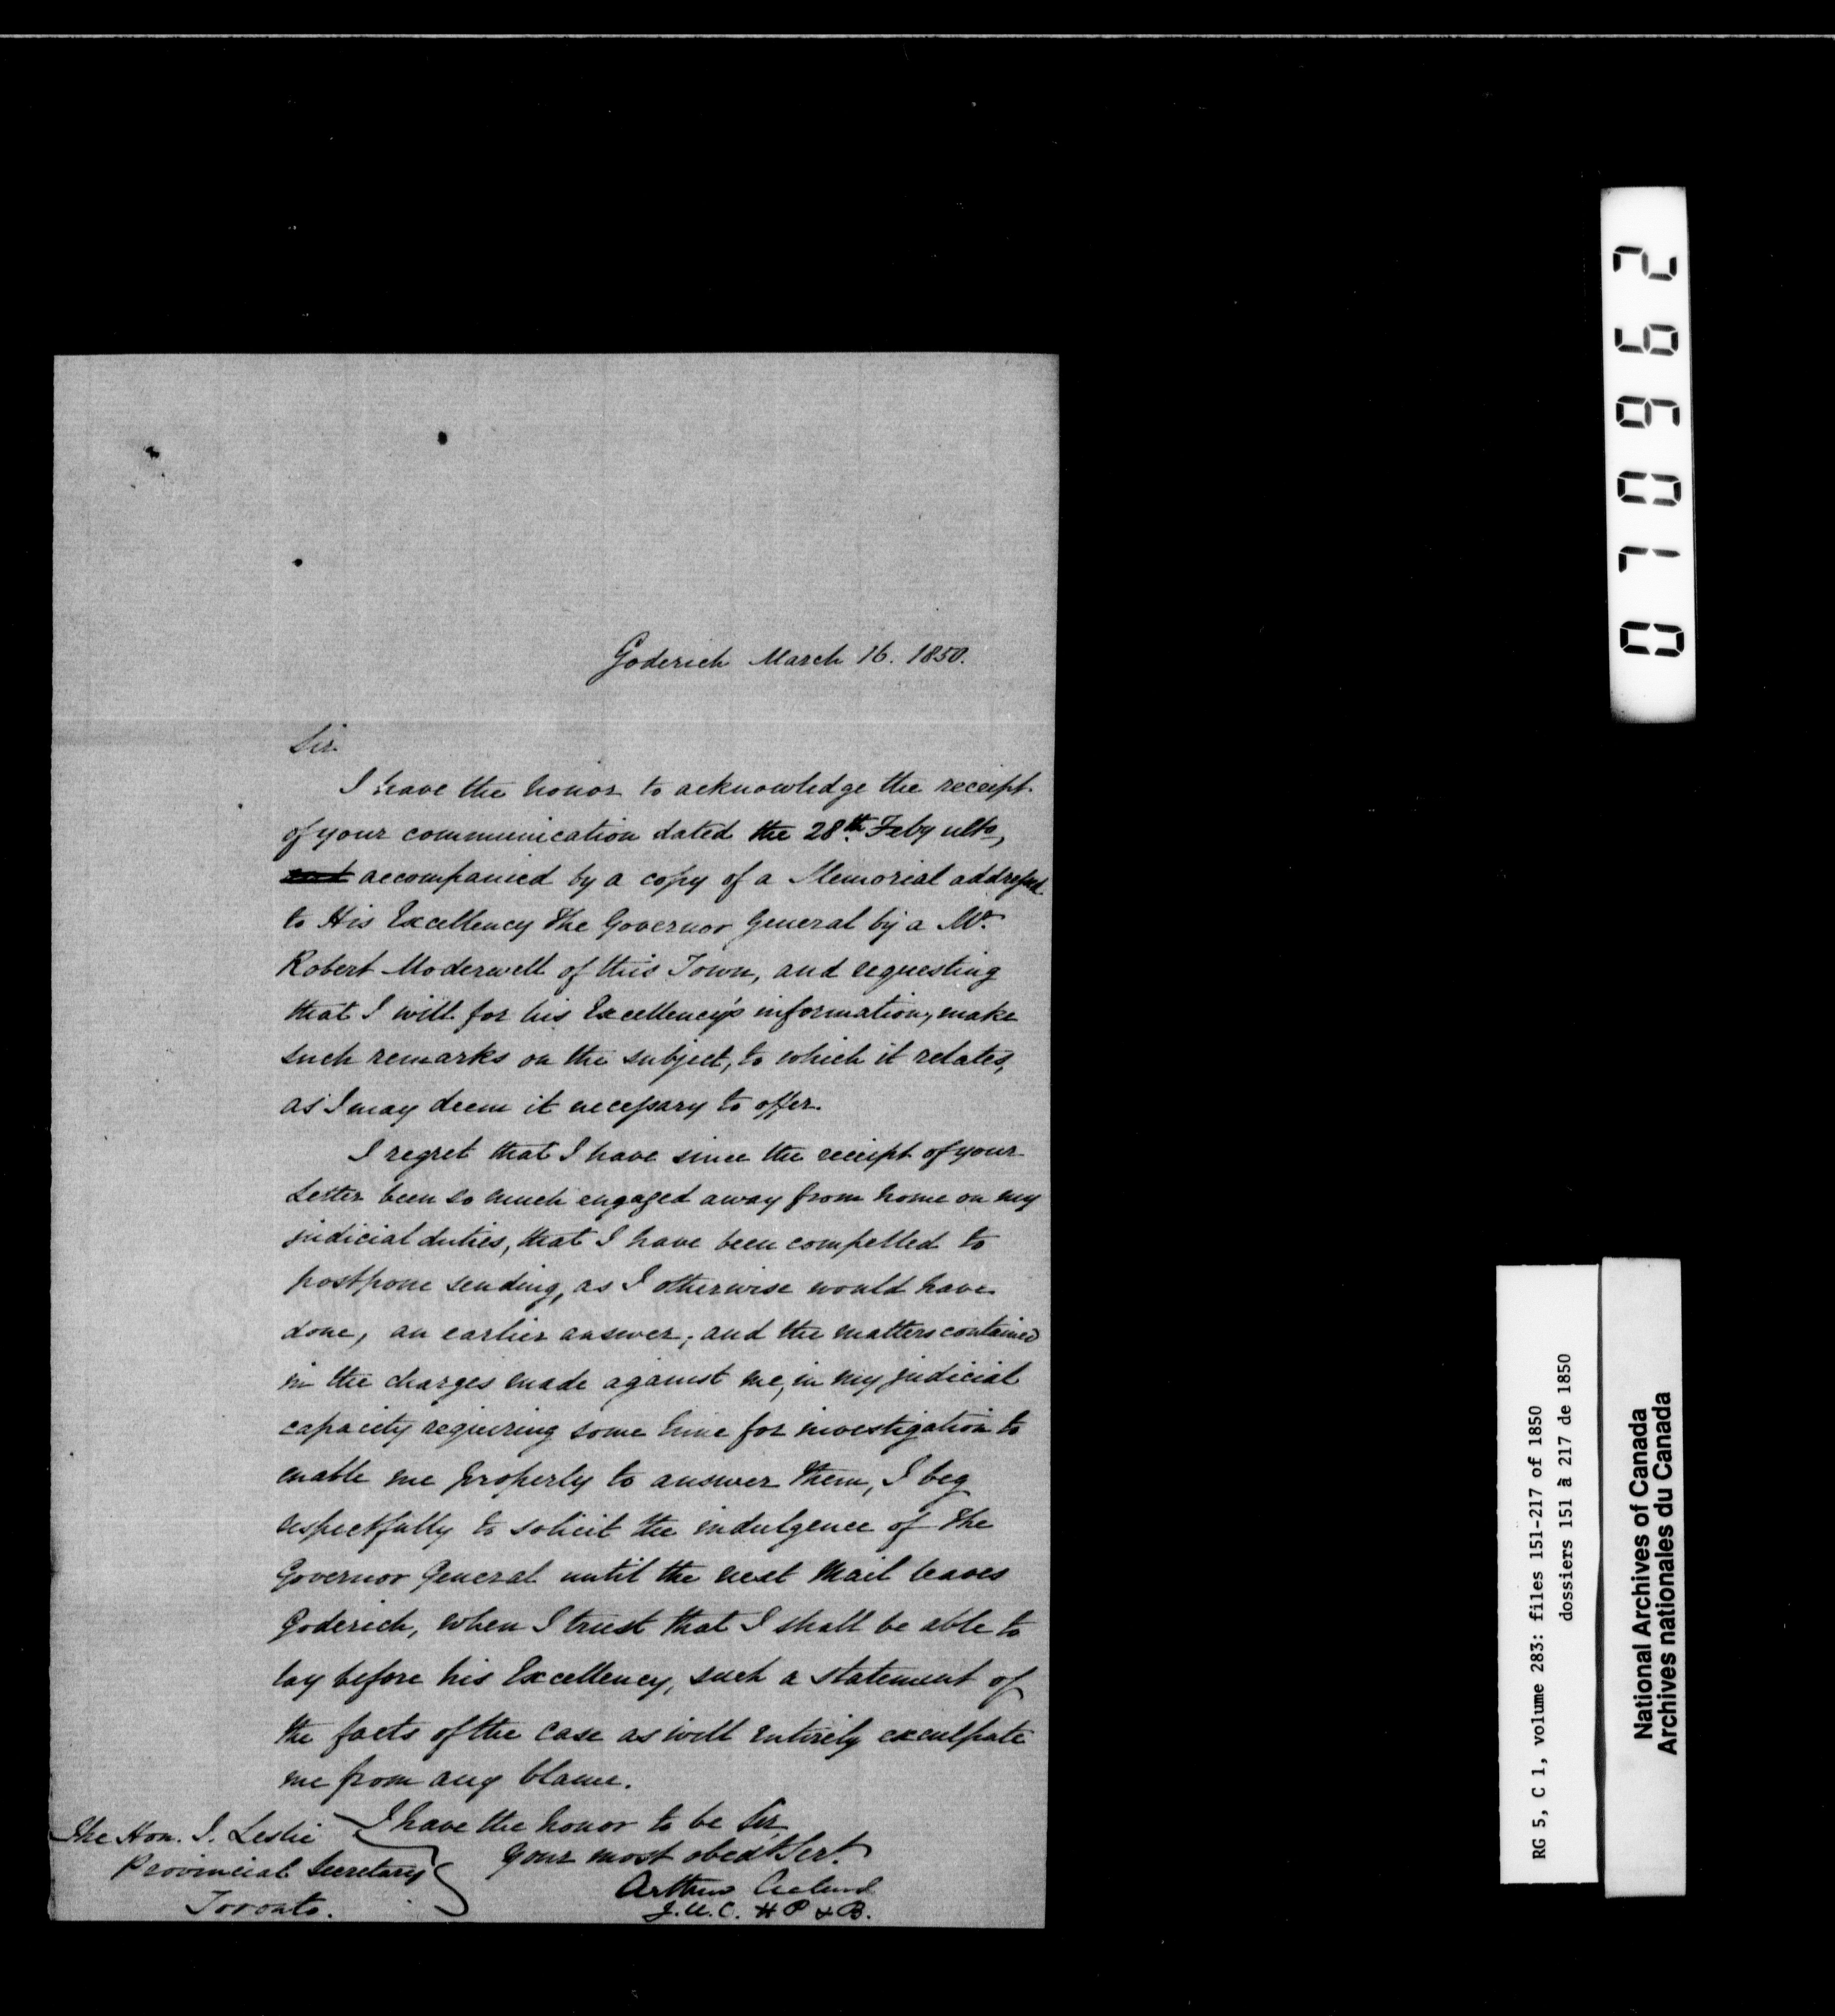 Goderich March 16. 1850.
Sir
I have the honor to acknowledge the receipt
of your communication dated the 28th. Feby ulto,
and accompanied by a copy of a Memorial addressed
to His Excellency The Governor General by a Mr.
Robert Moderwell of this Town, and requesting
that I will for his Excellency's information, make
such remarks on the subject, to which it relates,
as I may deem it necessary to offer.
I regret that I have since the receipt of your
Letter been so much engaged away from home on my
judicial duties, that I have been compelled to
postpone sending, as I otherwise would have
done, an earlier answer; and the matters contained
in the charges made against me, in my judicial
capacity requiring some time for investigation to
enable me properly to answer them, I beg
respectfully to solicit the indulgence of The
Governor General until the next Mail leaves
Goderich, when I trust that I shall be able to
lay before his Excellency, such a statement of
the facts of the case as will entirely exculpate
me from any blame.
I have the honor to be Sir
Your most obedt Servt.
Arthur Acland
J.U.C. H P & B.
The Hon. J. Leslie
Provincial Secretary
Toronto.
070962
RG 5, C 1, volume 283: files 151-217 of 1850
dossiers 151 à 217 de 1850
National Archives of Canada
Archives nationales du Canada